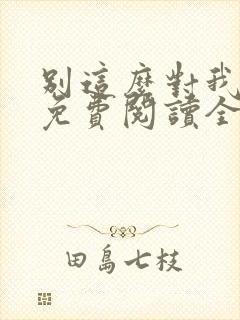 別這麼對我
免費閱讀全
田島七枝